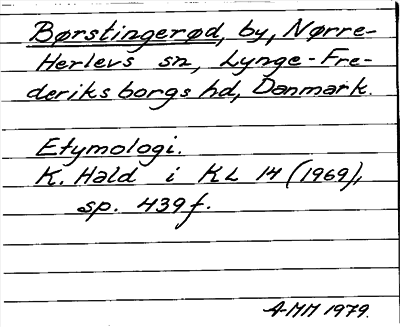 Børstingerød, by, Nørre-
Herlevs sn, Lynge-Fre-
deriksborgs hd, Danmark.
Etymologi.
K. Hald i KL 14 (1969),
sp. 439 f.
AMM 1979.